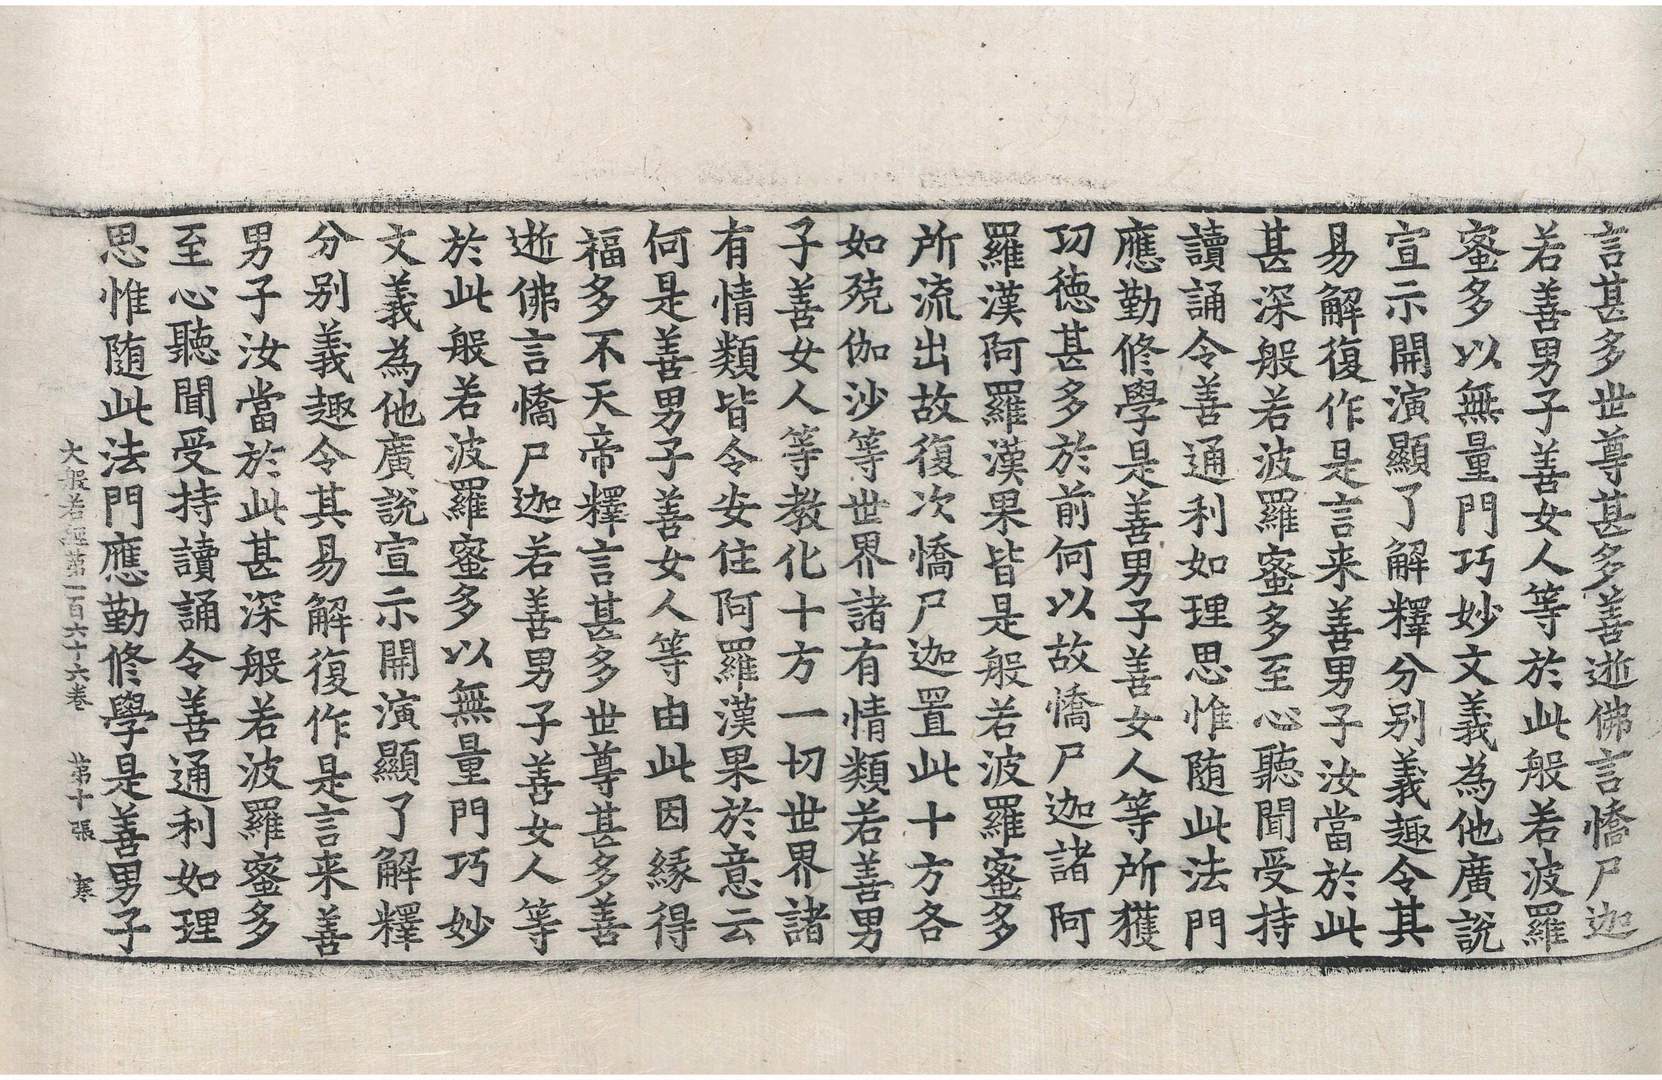 言甚多世尊甚多善逝佛言憍尸迦
若善男子善女人等於此般若波羅
蜜多以無量門巧妙文義為他廣說
宣示開演顯了解釋分别義趣令其
易解復作是言来善男子汝當於此
甚深般若波羅蜜多至心聽聞受持
讀誦令善通利如理思惟随此法門
應勤修學是善男子善女人等所獲
功德甚多於前何以故憍尸迦諸阿
羅漢阿羅漢果皆是般若波羅蜜多
所流出故復次憍尸迦置此十方各
如殑伽沙等世界諸有情類若善男
子善女人等教化十方一切世界諸
有情類皆令安住阿羅漢果於意云
何是善男子善女人等由此因緣得
福多不天帝釋言甚多世尊甚多善
逝佛言憍尸迦若善男子善女人等
於此般若波羅蜜多以無量門巧妙
文義為他廣說宣示開演顯了解釋
分别義趣令其易解復作是言来善
男子汝當於此甚深般若波羅蜜多
至心聽聞受持讀誦令善通利如理
思惟随此法門應勤修學是善男子
大般若經第一百六十六卷 第十張 寒